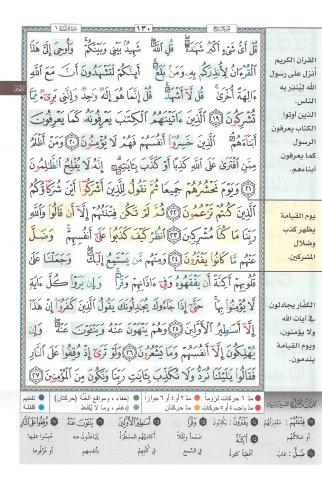 ١٣٠
قُلْ أَىُّ شَىْءٍ أَكْبَرُ شَهَٰدَةً ۖ قُلِ ٱللَّهُ ۖ شَهِيدٌۢ بَيْنِى وَبَيْنَكُمْ ۚ وَأُوحِىَ إِلَىَّ هَٰذَا
ٱلْقُرْءَانُ لِأُنذِرَكُم بِهِۦ وَمَنۢ بَلَغَ ۚ أَئِنَّكُمْ لَتَشْهَدُونَ أَنَّ مَعَ ٱللَّهِ
ءَالِهَةً أُخْرَىٰ ۚ قُل لَّآ أَشْهَدُ ۚ قُلْ إِنَّمَا هُوَ إِلَٰهٌ وَٰحِدٌ وَإِنَّنِى بَرِىٓءٌ مِّمَّا
تُشْرِكُونَ ١٩ ٱلَّذِينَ ءَاتَيْنَٰهُمُ ٱلْكِتَٰبَ يَعْرِفُونَهُۥ كَمَا يَعْرِفُونَ
أَبْنَآءَهُمُ ۘ ٱلَّذِينَ خَسِرُوٓا۟ أَنفُسَهُمْ فَهُمْ لَا يُؤْمِنُونَ ٢٠ وَمَنْ أَظْلَمُ
مِمَّنِ ٱفْتَرَىٰ عَلَى ٱللَّهِ كَذِبًا أَوْ كَذَّبَ بِـَٔايَٰتِهِۦٓ ۗ إِنَّهُۥ لَا يُفْلِحُ ٱلظَّٰلِمُونَ
٢١ وَيَوْمَ نَحْشُرُهُمْ جَمِيعًا ثُمَّ نَقُولُ لِلَّذِينَ أَشْرَكُوٓا۟ أَيْنَ شُرَكَآؤُكُمُ
ٱلَّذِينَ كُنتُمْ تَزْعُمُونَ ٢٢ ثُمَّ لَمْ تَكُن فِتْنَتُهُمْ إِلَّآ أَن قَالُوا۟ وَٱللَّهِ
رَبِّنَا مَا كُنَّا مُشْرِكِينَ ٢٣ ٱنظُرْ كَيْفَ كَذَبُوا۟ عَلَىٰٓ أَنفُسِهِمْ ۚ وَضَلَّ
عَنْهُم مَّا كَانُوا۟ يَفْتَرُونَ ٢٤ وَمِنْهُم مَّن يَسْتَمِعُ إِلَيْكَ ۖ وَجَعَلْنَا عَلَىٰ
قُلُوبِهِمْ أَكِنَّةً أَن يَفْقَهُوهُ وَفِىٓ ءَاذَانِهِمْ وَقْرًا ۚ وَإِن يَرَوْا۟ كُلَّ ءَايَةٍ
لَّا يُؤْمِنُوا۟ بِهَا ۚ حَتَّىٰٓ إِذَا جَآءُوكَ يُجَٰدِلُونَكَ يَقُولُ ٱلَّذِينَ كَفَرُوٓا۟ إِنْ هَٰذَآ
إِلَّآ أَسَٰطِيرُ ٱلْأَوَّلِينَ ٢٥ وَهُمْ يَنْهَوْنَ عَنْهُ وَيَنْـَٔوْنَ عَنْهُ ۖ وَإِن
يُهْلِكُونَ إِلَّآ أَنفُسَهُمْ وَمَا يَشْعُرُونَ ٢٦ وَلَوْ تَرَىٰٓ إِذْ وُقِفُوا۟ عَلَى ٱلنَّارِ
فَقَالُوا۟ يَٰلَيْتَنَا نُرَدُّ وَلَا نُكَذِّبَ بِـَٔايَٰتِ رَبِّنَا وَنَكُونَ مِنَ ٱلْمُؤْمِنِينَ ٢٧
القرآن الكريم
أنزل على رسول
الله ليُنذِر به
الناس.
الذين أوتوا
الكتاب يعرفون
الرسول
كما يعرفون
أبناءهم.
يوم القيامة
يظهر كذب
وضلال
المشركين.
الكفار يجادلون
في آيات الله
ولا يؤمنون،
ويوم القيامة
يندمون
مدّ ٦ حركات لزوماً
مدّ ٢ أو ٤ أو ٦ جوازاً
إخفاء، ومواقع الغنّة (حركتان)
تفخيم
مدّ واجب ٤ أو ٥ حركات
مدّ حركتان
إدغام، وما لا يُلفظ
قلقلة